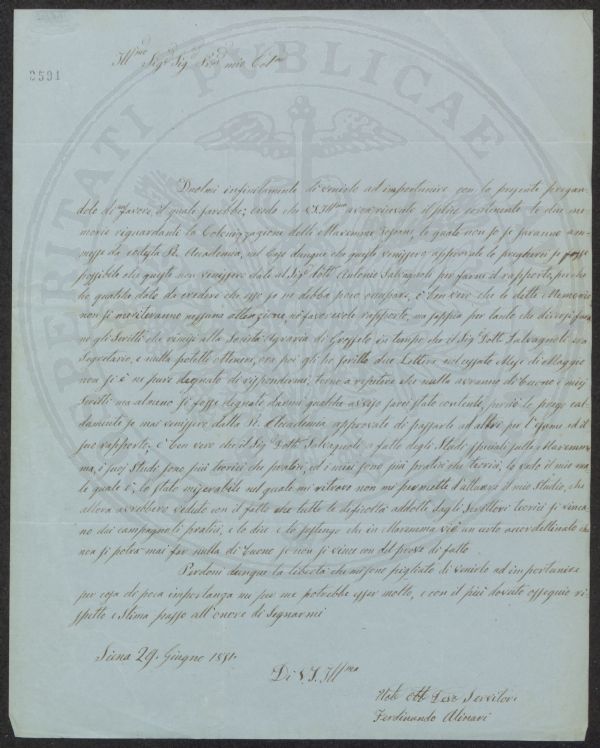 Ill.mo Sig.e Sig.e Pro.e mio Col.mo
2591
PROSPERITATI PUBLICAE
Duolmi infinitamente di venirlo ad importunire con la presente pregan-
dolo di un favore il quale sarebbe; credo che V.S. Ill.ma avrà ricevute il plico contenente le due me-
morie riguardanti la Colonizzazione delle Maremme Toscane, le quali non so se saranno am-
messe da cotesta R. Accademia, nel Caso dunque che queste venissero approvate la pregherei se fosse
possibile che queste non venissero date al Sig.e Dott. Antonio Salvagnoli per farne il rapporto, perche
ho qualche dato da credere che esso se ne debba poco occupare, è ben vero che le dette Memorie
non si meriteranno nessuna attenzione, ne favorevole rapporto, ma sappia per tanto che diversi furo-
no gli Scritti che rimisi alla Società Agraria di Grosseto in tempo che il Sig.e Dott. Salvagnoli era
Segretario, e nulla potetti ottenere, ora poi gli ho scritto due Lettere nel cessato Mese di Maggio
non si è ne pure degnato di rispondermi, torno a repetere che nulla avranno di buono i miei
Scritti ma almeno si fosse degnato darmi qualche avviso sarei stato contento, perciò la prego cal-
damente se mai venissero dalla R. Accademia approvate di passarle ad altri per l'esame ed il
suo rapporto; è ben vero che il Sig.e Dott. Salvagnoli a fatto degli Studi speciali sulla Maremma
ma, i suoi Studi sono più teorici che pratici, ed i miei sono più pratici che teorici, lo stato il mio ma
le quale è, lo stato miserabile nel quale mi ritrovo non mi permette d'attuare il mio Studio, che
allora avrebbero veduto con il fatto che tutte le dificoltà addotte dagli Scrittori teorici si vinca-
no dai campagnoli pratici, e lo dico e lo sostengo che in Maremma vi è un certo accordellinato che
non si potrà mai far nulla di buono se non si vince con il prove di fatto.
Perdoni dunque la libertà che mi sono pigliato di venirlo ad importunire
per cosa di poca importanza ma per me potrebbe esser molto, e con il più dovuto ossequio ri-
spetto e Stima passo all'onore di Segnarmi
Siena 29. Giugno 1851.
Di V.S. Ill.ma
Ferdinando Alinari